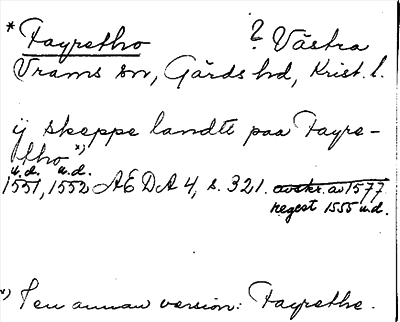 * Fayretho ? Västra
Vrams sn, Gärds hd, Krist. l.
ij skeppe landtt paa Fayre-
tho x)
u.d. u.d.
1551, 1552 ÆDA 4, s. 321. avskr. av 1577
regest 1555 u.d.
x) I en annan version: Fayrethe.